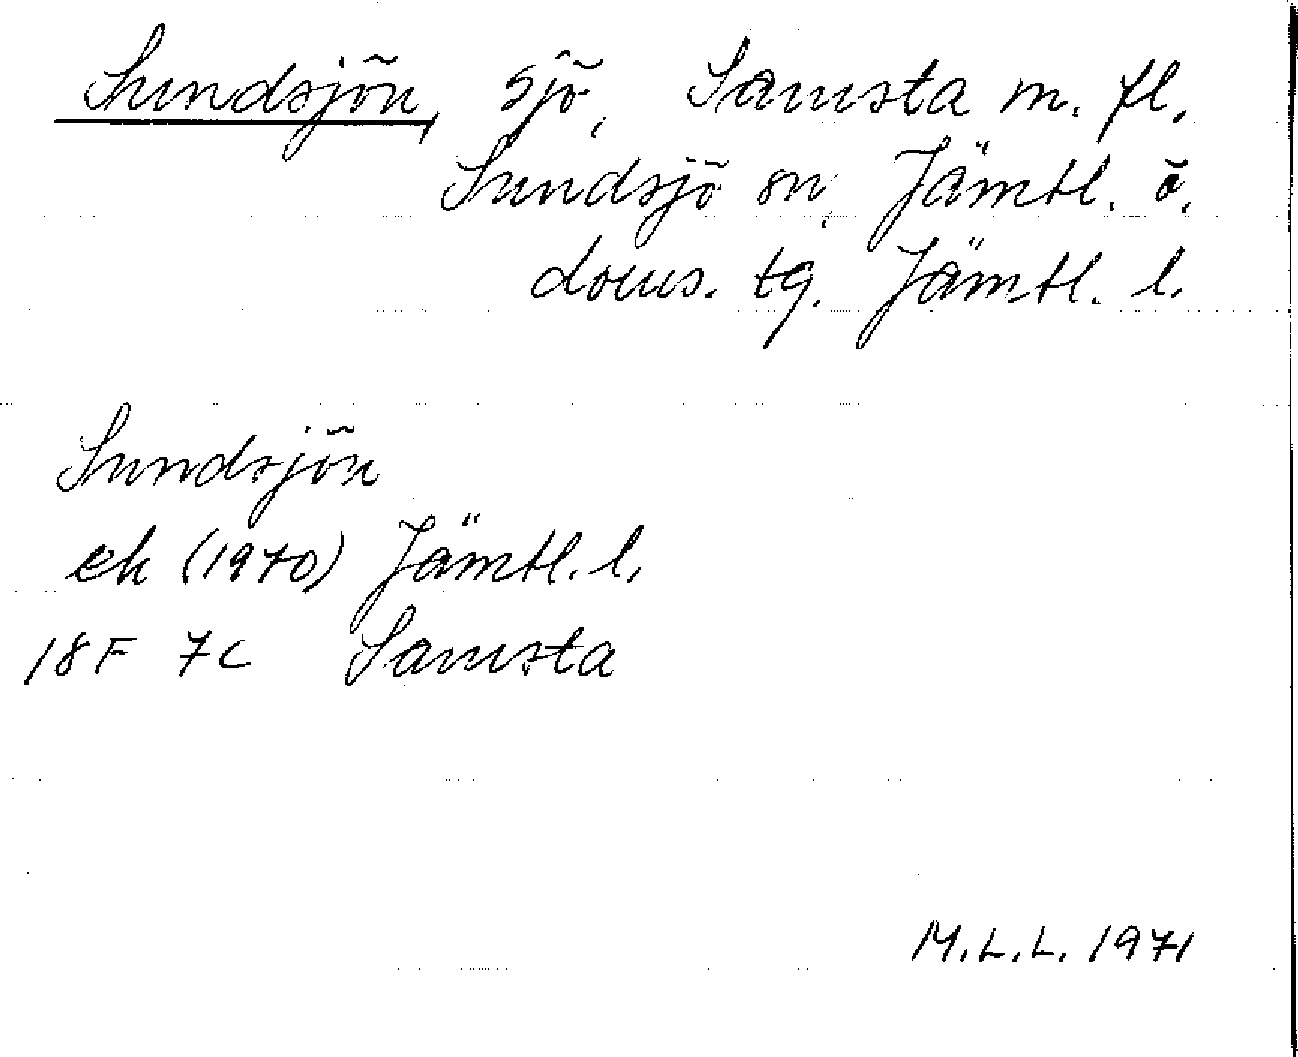 Sundsjön, sjö, Samsta m. fl.
Sundsjö sn, Jämtl. ö.
doms. tg. Jämtl. l.
Sundsjön
ek (1970) Jämtl. l.
18F 7C Samsta
M.L.L. 1971